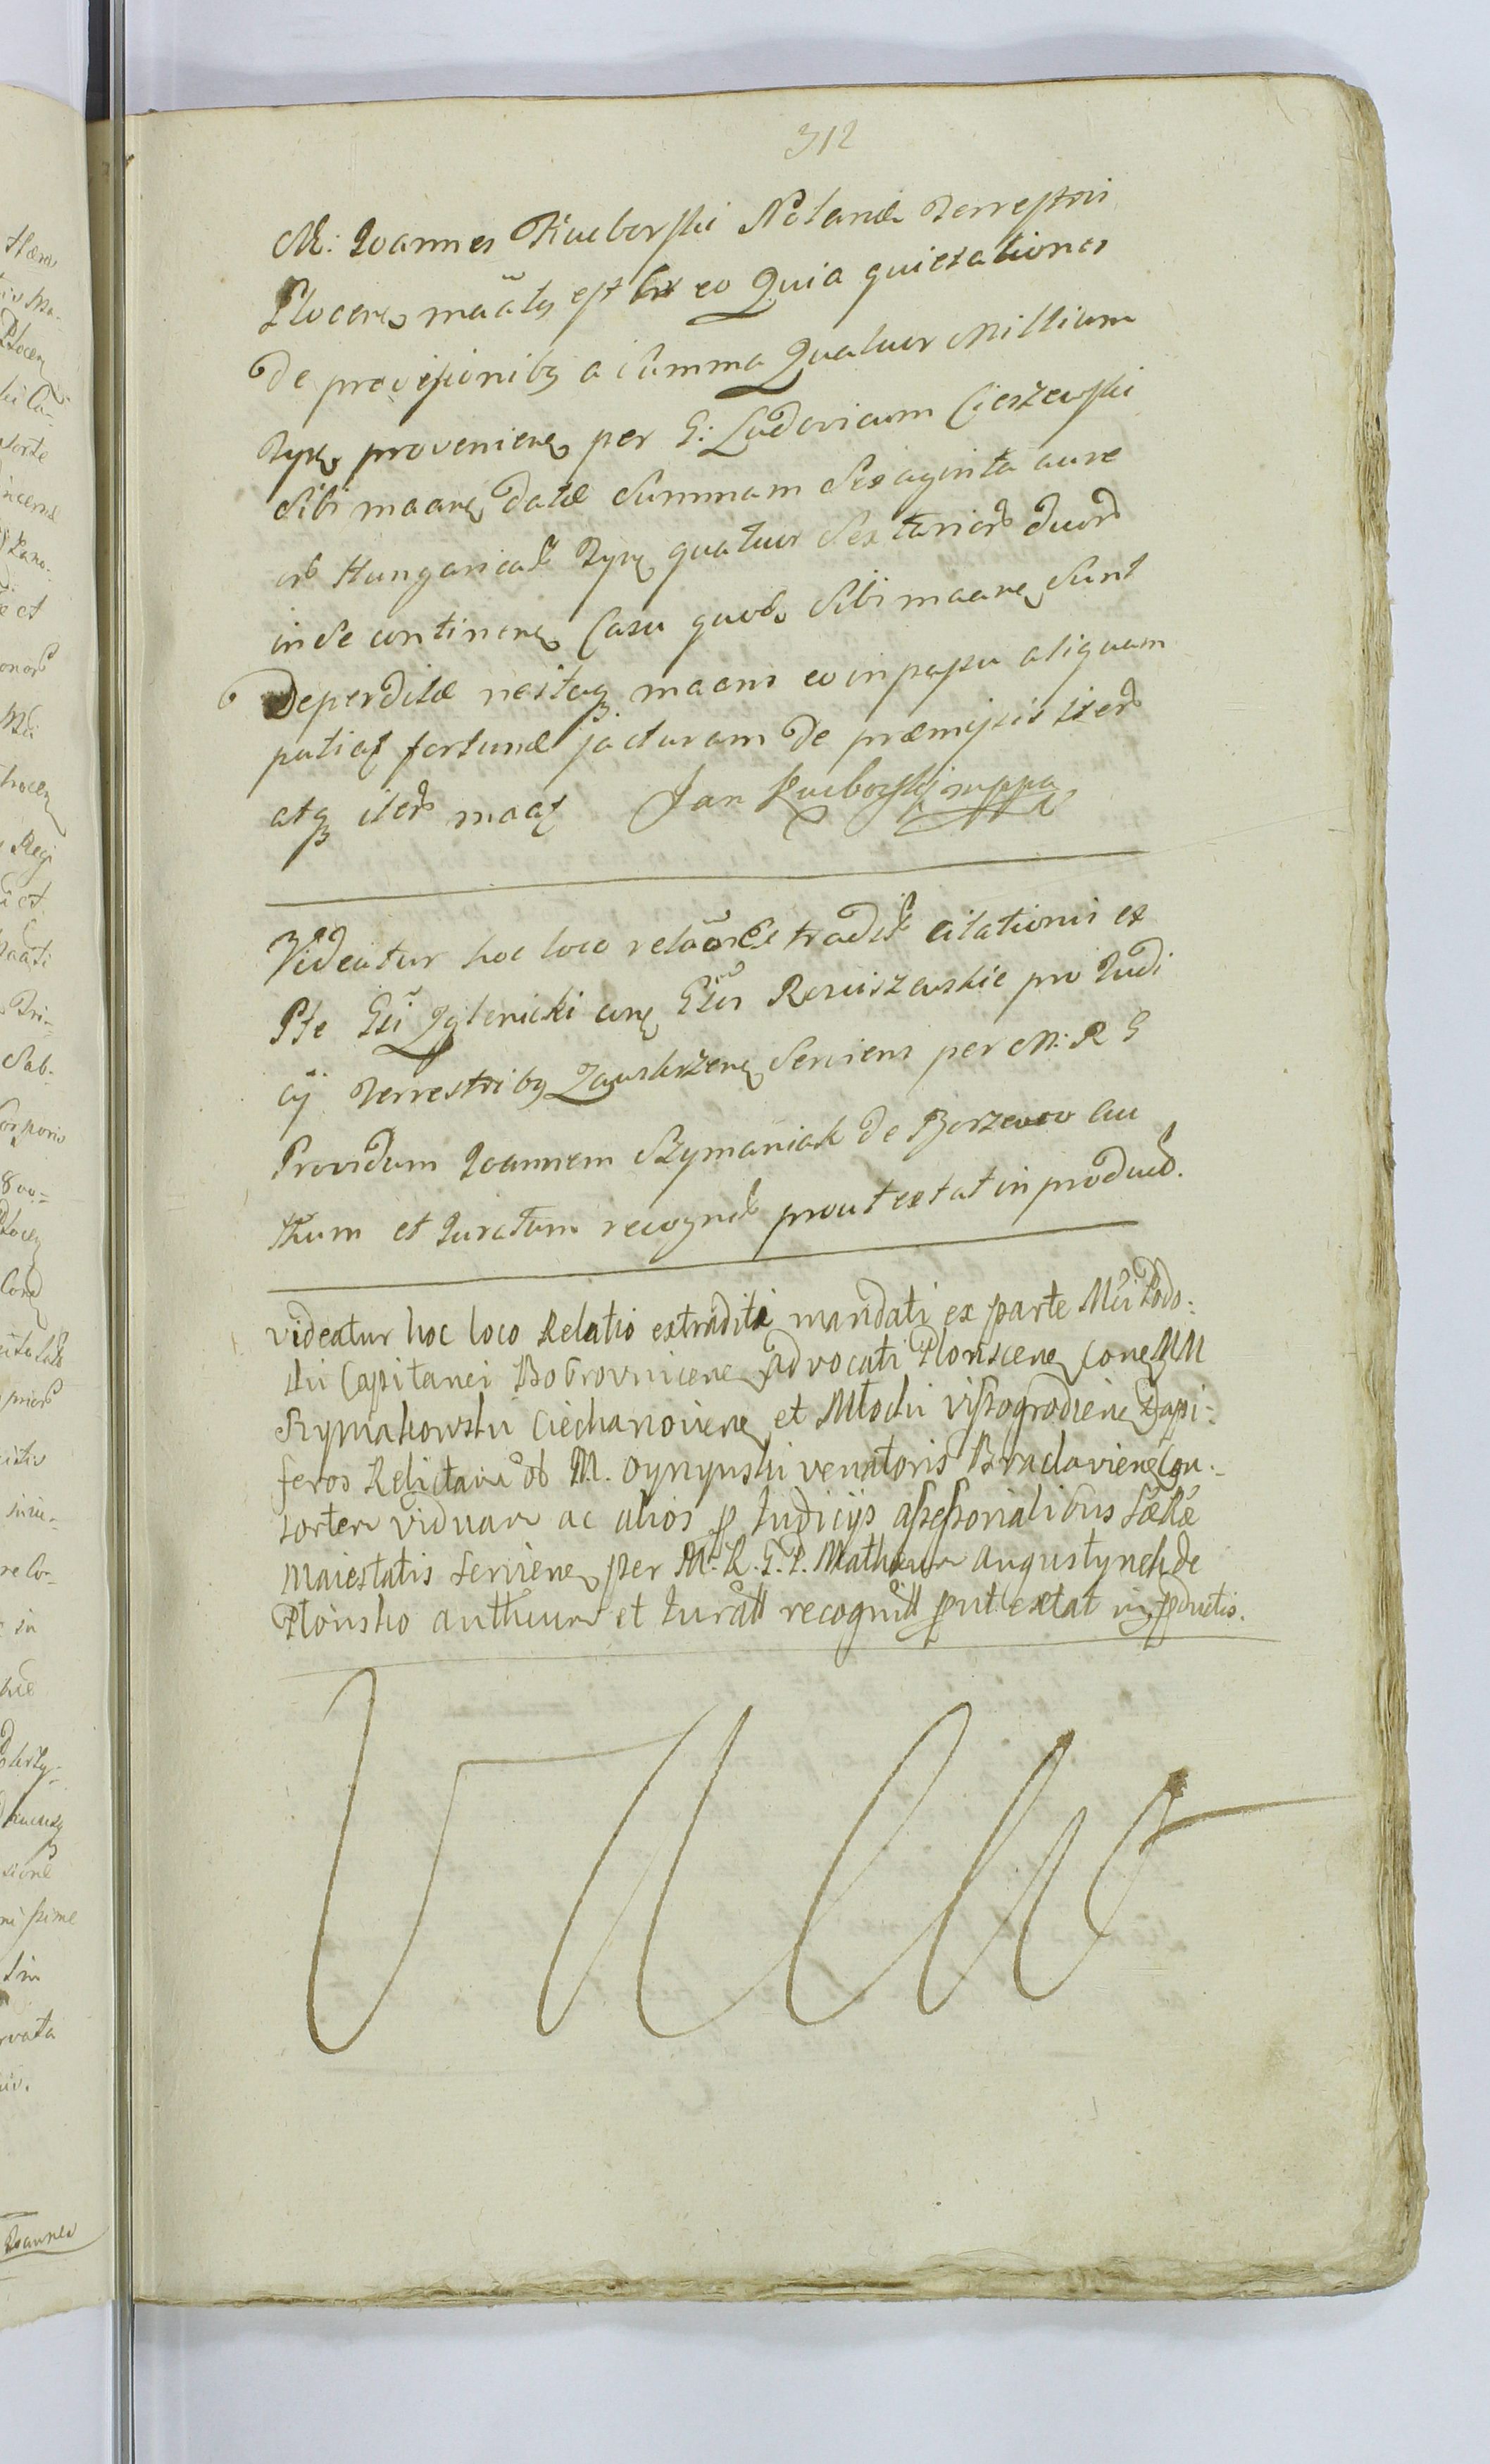 312
M: Joannes Kucborski Notarius Terrestris
Plocen maãtus est in eo Quia quietationes
de provisionibus a summa Quatuor Millium
Typ. provenien per G: Ludovicum Cieszewski
sibi maaren datæ summam sexaginta aure
orũ Hungaricaliũ Typ. quatuor sex tarior duorũ
in se continen Casu quod. sibi maaren sunt
Deperditæ nesitaq maans eo in passu aliquam
patiat fortunæ jacturam de præmissis iterũ
atq iterũ maat Jan Kucborski mppa
Videatur hoc loco relãõ Extradit citationis ex
Pte Gsi Zglenicki con Gsos Rosciszewskie pro Judi
cÿ Terrestribus Zawskrzen serviens per M: R G
Providum Joannem Szymaniak de Borzewo au
thum et Juratum recognit prout extat in product.
Videatur hoc loco Relatio extraditi mandati ex parte Mci Podo:
ski Capitanei Bobrovnicen Advocati Plonscen con MM
Szymakowski Ciechanovien et Młocki Vissogrodien Dapi:
feros Relictam ob M. Oyrzynski venatoris Braclavien Con-
sortem viduam ac alios p Judicijs assessorialibus Sæ Ræ
Maiestatis servien per M. R. G. P. Mathæum Augustynek de
Płońsko authum et Jurãtt recognitt put extat in pductis.